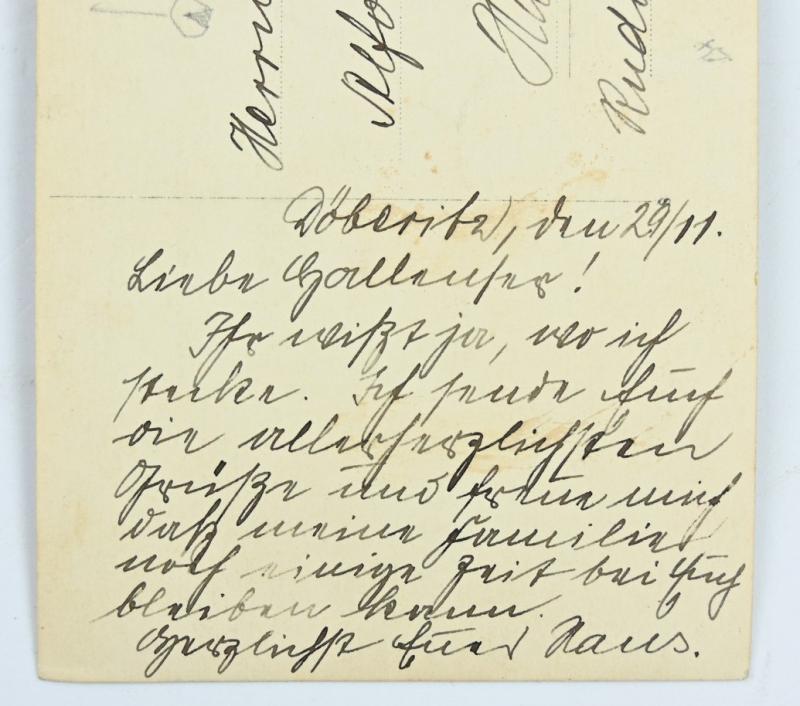 Herrn
Alfo
Rudo
Döberitz, den 29/11.
Liebe Hallenser!
Ihr wißt ja, wo ich
stecke. Ich sende Euch
die allerherzlichsten
Grüße und freue mich
daß meine Familie
noch einige Zeit bei Euch
bleiben kann.
Herzlichst Euer Hans.